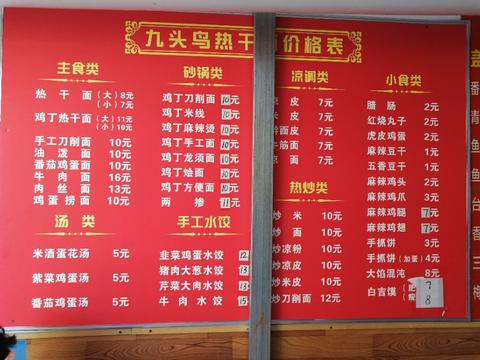 九头鸟热干 价格表
主食类
热干面 (大) 8元
(小) 7元
鸡丁热干面 (大) 11元
(小) 10元
手工刀削面 10元
油泼面 10元
番茄鸡蛋面 10元
牛肉面 16元
肉丝面 13元
鸡蛋捞面 10元
汤类
米酒蛋花汤 5元
紫菜鸡蛋汤 5元
番茄鸡蛋汤 5元
砂锅类
鸡丁刀削面 元
鸡丁米线 元
鸡丁麻辣烫 元
鸡丁手工面 元
鸡丁龙须面 元
鸡丁烩面 元
鸡丁方便面 元
两掺 11元
手工水饺
韭菜鸡蛋水饺 12
猪肉大葱水饺 13
芹菜大肉水饺 13
牛肉水饺 15
凉调类
皮 7元
皮 7元
面皮 7元
牛筋面 7元
面 7元
热炒类
炒米 10元
炒面 10元
炒凉粉 10元
炒凉皮 10元
炒刀削面 12元
小食类
腊肠 2元
红烧丸子 2元
虎皮鸡蛋 2元
麻辣豆干 1元
五香豆干 1元
麻辣鸡爪 3元
麻辣鸡腿 7元
麻辣鸡翅 7元
手抓饼 3元
手抓饼 (加蛋) 4元
大馅混沌 8元
白吉馍 (肥 7
(瘦 8